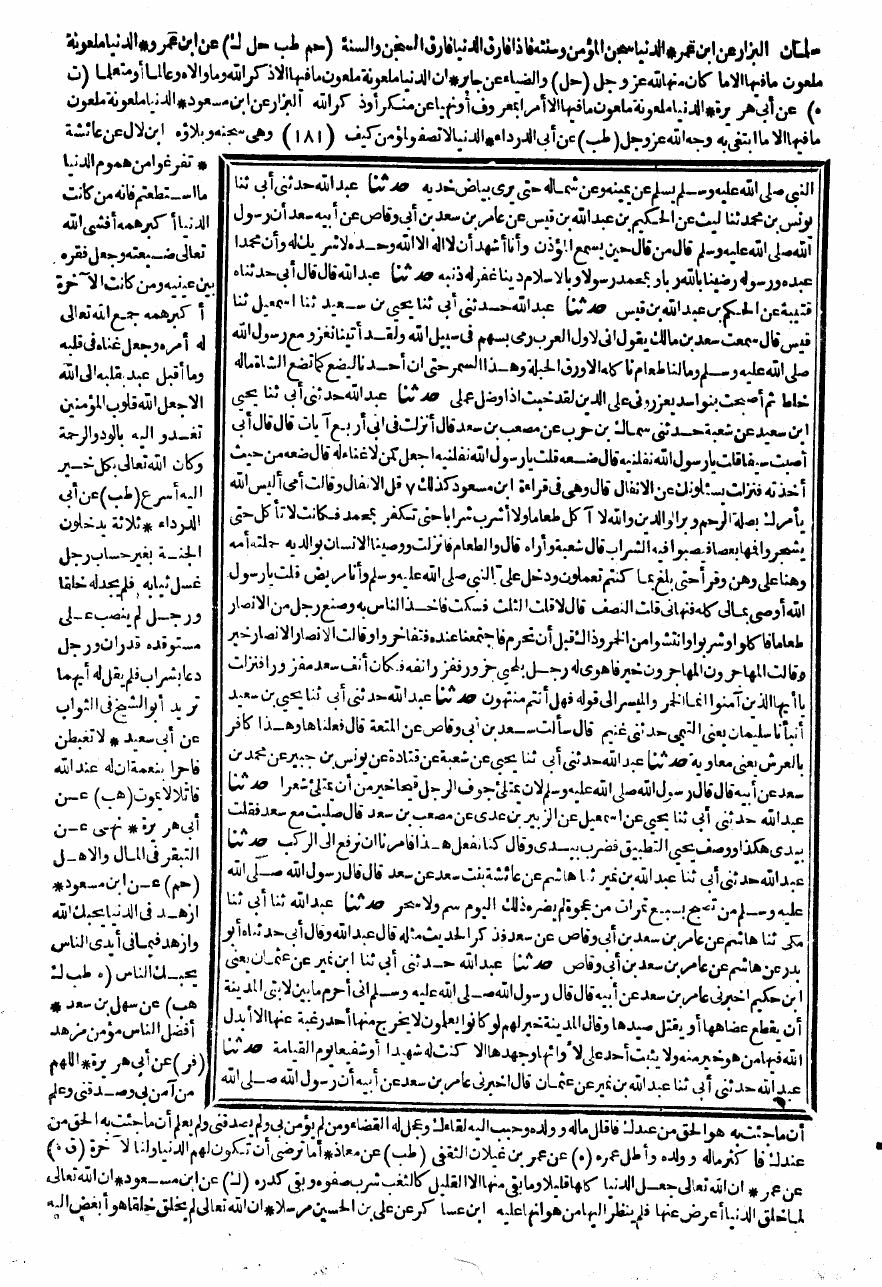 سلمان البزار عن ابن عمر * الدنيا سجن المؤمن وسنته فاذا فارق الدنيا فارق السجن والسنة (حم طب حل ك) عن ابن عمرو * الدنيا ملعونة
ملعون ما فيها الا ما كان منها لله عز وجل (حل) والضياء عن جابر * ان الدنيا ملعونة ملعون ما فيها الا ذكر الله وما والاه وعالما أو متعلما (ت
ه) عن أبي هريرة * الدنيا ملعونة ملعون ما فيها الا أمرا بمعروف أو نهيا عن منكر أو ذكر الله البزار عن ابن مسعود * الدنيا ملعونة ملعون
ما فيها الا ما ابتغى به وجه الله عز وجل (طب) عن أبي الدرداء * الدنيا لا تصفو لمؤمن كيف (١٨١) وهى سجنه وبلاؤه ابن لال عن عائشة
النبي صلى الله عليه وسلم يسلم عن يمينه وعن شماله حتى يرى بياض خديه حدثنا عبد الله حدثنى أبي ثنا
يونس بن محمد ثنا ليث عن الحكيم بن عبد الله بن قيس عن عامر بن سعد بن أبي وقاص عن أبيه سعد أن رسول
الله صلى الله عليه وسلم قال من قال حين يسمع المؤذن وأنا أشهد أن لا اله الا الله وحده لا شريك له وأن محمدا
عبده ورسوله رضينا بالله ربا وبمحمد رسولا وبالاسلام دينا غفر له ذنبه حدثنا عبد الله قال قال أبي حدثناه
قتيبة عن الحكيم بن عبد الله بن قيس حدثنا عبد الله حدثنى أبي ثنا يحيى بن سعيد ثنا اسمعيل ثنا
قيس قال سمعت سعد بن مالك يقول انى لاول العرب رمى بسهم في سبيل الله ولقد أتينا نغزو مع رسول الله
صلى الله عليه وسلم وما لنا طعام ناكله الا ورق الحبلة وهذا السمر حتى ان أحدنا ليضع كما تضع الشاة ماله
خلط ثم أصبحت بنو اسد يعزروني على الدين لقد خبت اذا وضل عملى حدثنا عبد الله حدثنى أبي ثنا يحيى
ابن سعيد عن شعبة حدثنى سماك بن حرب عن مصعب بن سعد قال أنزلت في ابي أربع آيات قال قال أبي
أصبت سيفا قلت يا رسول الله نفلنيه قال ضعه قلت يا رسول الله نفلنيه اجعل كمن لا غناء له قال ضعه من حيث
أخذته فنزلت يسئلونك عن الانفال قال وهى في قراءة ابن مسعود كذلك ٧ قل الانفال وقالت أمى أليس الله
يأمرك بصلة الرحم وبر الوالدين والله لا آكل طعاما ولا أشرب شرابا حتى تكفر بمحمد فكانت لا تأكل حتى
يشجروا فمها بعصا فيصبوا فيه الشراب قال شعبة وأراه قال والطعام فانزلت ووصينا الانسان بوالديه حملته أمه
وهنا على وهن وقرأ حتى بلغ بما كنتم تعملون ودخل على النبي صلى الله عليه وسلم وأنا مريض قلت يا رسول
الله أوصى بمالى كله فنهانى قلت النصف قال لا قلت الثلث فسكت فاخذ الناس به وصنع رجل من الانصار
طعاما فاكلوا وشربوا وانتشوا من الخمر وذاك قبل أن تحرم فاجتمعنا عنده فتفاخروا وقالت الانصار الانصار خير
وقالت المهاجرون المهاجرون خير فاهوى له رجل بلحيي جزور ففزر انفه فكان أنف سعد مفزورا فنزلت
يا أيها الذين آمنوا انما الخمر والميسر الى قوله فهل أنتم منتهون حدثنا عبد الله حدثنى أبي ثنا يحيى بن سعيد
أنبأنا سليمان يعنى التيمى حدثنى غنيم قال سألت سعد بن أبي وقاص عن المتعة قال فعلناها وهذا كافر
بالعرش يعنى معاوية حدثنا عبد الله حدثنى أبي ثنا يحيى عن شعبة عن قتادة عن يونس بن جبير عن محمد بن
سعد عن أبيه قال قال رسول الله صلى الله عليه وسلم لان يمتلئ جوف الرجل قيحا خير من أن يمتلئ شعرا حدثنا
عبد الله حدثنى أبي ثنا يحيى عن اسمعيل عن الزبير بن عدى عن مصعب بن سعد قال صليت مع سعد فقلت
بيدى هكذا ووصف يحيى التطبيق فضرب بيدى وقال كنا نفعل هذا فامرنا ان نرفع الى الركب حدثنا
عبد الله حدثنى أبي ثنا عبد الله بن نمير ثنا هاشم عن عائشة بنت سعد عن سعد قال قال رسول الله صلى الله
عليه وسلم من تصبح بسبع تمرات من عجوة لم يضره ذلك اليوم سم ولا سحر حدثنا عبد الله ثنا أبي ثنا
مكى ثنا هاشم عن عامر بن سعد بن أبي وقاص عن سعد فذكر الحديث مثله قال عبد الله وقال أبي حدثناه أبو
بدر عن هاشم عن عامر بن سعد بن أبي وقاص حدثنا عبد الله حدثنى أبي ثنا ابن نمير عن عثمان يعنى
ابن حكيم اخبرنى عامر بن سعد عن أبيه قال قال رسول الله صلى الله عليه وسلم انى أحرم ما بين لابتى المدينة
أن يقطع عضاهها أو يقتل صيدها وقال المدينة خير لهم لو كانوا يعلمون لا يخرج منها أحد رغبة عنها الا أبدل
الله فيها من هو خير منه ولا يثبت أحد على لأوائها وجهدها الا كنت له شهيدا أو شفيعا يوم القيامة حدثنا
عبد الله حدثنى أبي ثنا عبد الله بن نمير عن عثمان قال اخبرنى عامر بن سعد عن أبيه أن رسول الله صلى الله
* تفرغوا من هموم الدنيا
ما استطعتم فانه من كانت
الدنيا أكبر همه أفشى الله
تعالى ضيعته وجعل فقره
بين عينيه ومن كانت الآخرة
أكبر همه جمع الله تعالى
له أمره وجعل غناه في قلبه
وما أقبل عبد بقلبه الى الله
الا جعل الله قلوب المؤمنين
تغدو اليه بالود والرحمة
وكان الله تعالى بكل خير
اليه أسرع (طب) عن أبي
الدرداء * ثلاثة يدخلون
الجنة بغير حساب رجل
غسل ثيابه فلم يجد له خلفا
ورجل لم ينصب على
مستوقده قدران ورجل
دعا بشراب فلم يقل له أيهما
تريد أبو الشيخ في الثواب
عن أبي سعيد * لا تغبطن
فاجرا بنعمة ان له عند الله
قاتلا لا يموت (هب) عن
أبي هريرة * نهى عن
التبقر في المال والاهل
(حم) عن ابن مسعود *
ازهد في الدنيا يحبك الله
وازهد فيما في أيدى الناس
يحبك الناس (ه طب ك
هب) عن سهل بن سعد *
أفضل الناس مؤمن مزهد
(فر) عن أبي هريرة * اللهم
من آمن بى وصدقنى وعلم
أن ما جئت به هو الحق من عندك فاقل ماله وولده وحبب اليه لقاءك وعجل له القضاء ومن لم يؤمن بى ولم يصدقنى ولم يعلم أن ما جئت به الحق من
عندك فاكثر ماله وولده وأطل عمره (ه) عن عمرو بن غيلان الثقفى (طب) عن معاذ * أما ترضى أن تكون لهم الدنيا ولنا الآخرة (ق ه)
عن عمر * ان الله تعالى جعل الدنيا كلها قليلا وما بقى منها الا القليل كالثغب شرب صفوه وبقى كدره (ك) عن ابن مسعود * ان الله تعالى
لما خلق الدنيا أعرض عنها فلم ينظر اليها من هوانها عليه ابن عساكر عن على بن الحسين مرسلا * ان الله تعالى لم يخلق خلقا هو أبغض اليه